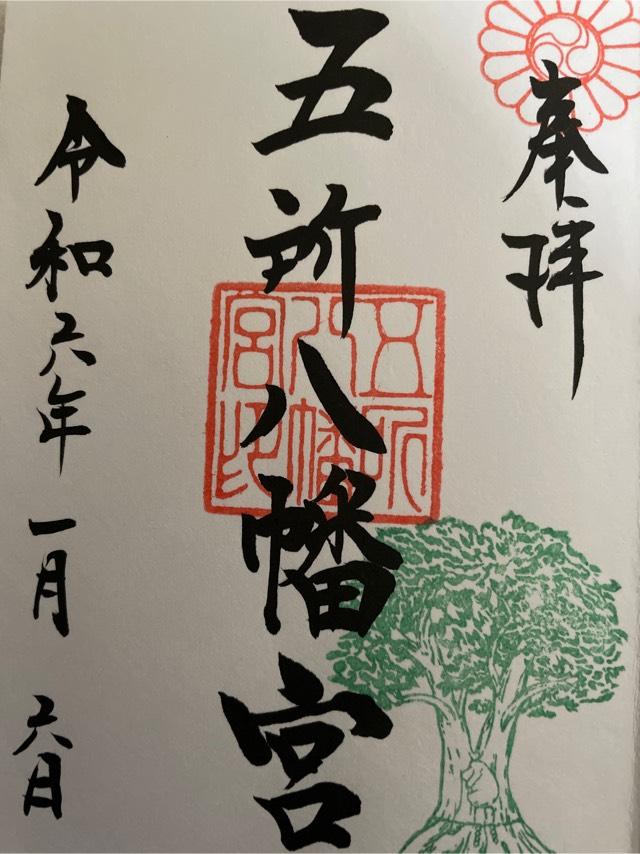 奉拝
五所八幡宮
五所
八幡
宮印
令和六年一月六日